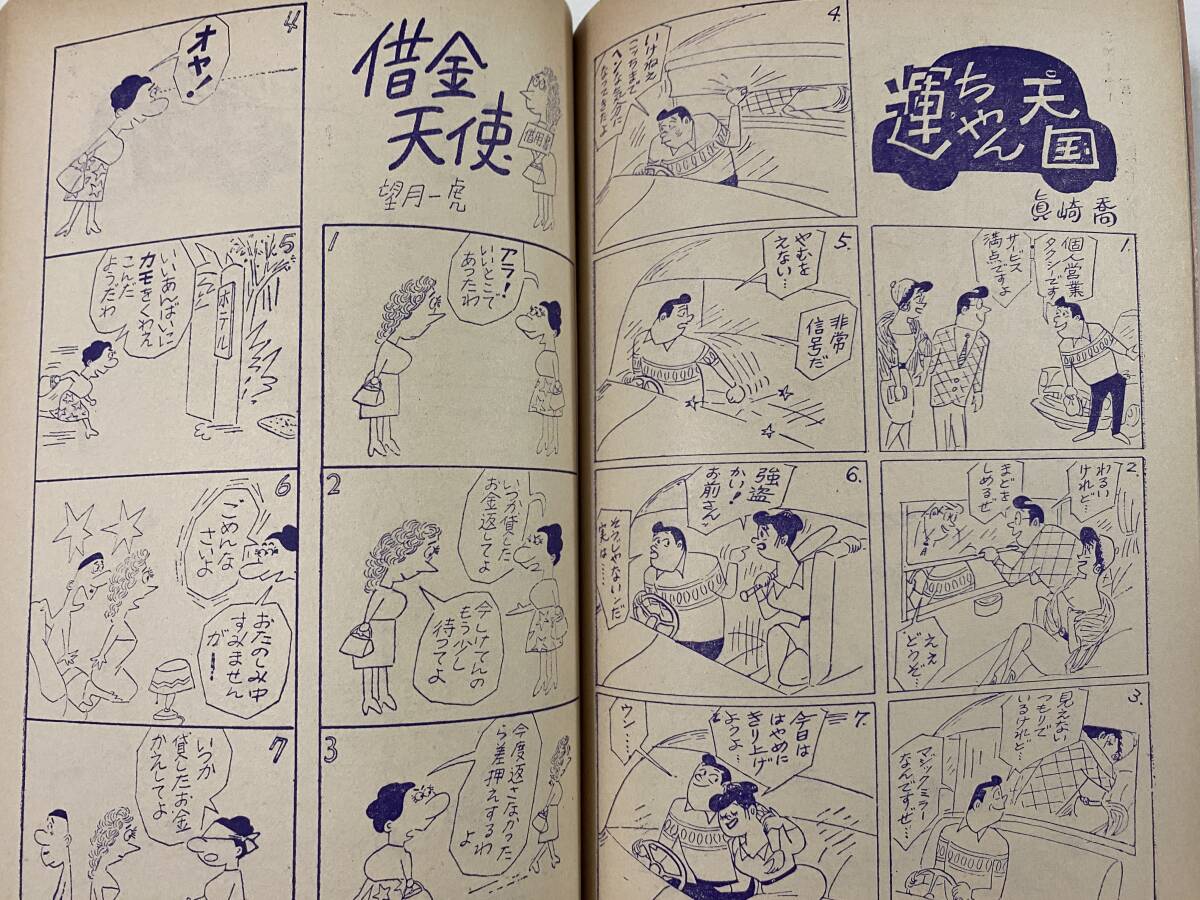 運ちゃん
天国
眞崎喬
1.
個人営業
タクシーです
サービス
満点ですよ
2.
わるい
けれど…
まどを
しめるぜ
ええ
どうぞ…
3.
見えない
つもりで
いるけれど…
マジックミラー
なんですぜ…
4.
いけねえ
こっちまで
ヘンな気分に
なってきたよ
5.
やむを
えない…
非常
信号だ
6.
強盗
かい!
お前さん
そうじゃないんだ
実は……
7.
今日は
はやめに
きり上げ
ようよ…
ウン…
借金
天使
望月一虎
1
アラ!
いいとこで
あったわ
2
いつか貸した
お金返してよ
今しけてんの
もう少し
待ってよ
3
今度返さなかった
ら差押えするわ
よ
4
オヤ!
5
ホテル
いいあんばいに
カモをくわえ
こんだ
ようだわ
6
ごめんな
さいよ
おたのしみ中
すみません
が…
7
いつか
貸したお金
かえしてよ